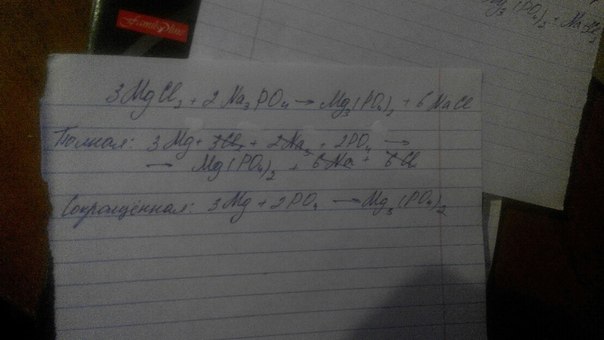 g₃(PO₄)₂ + NaCl
3MgCl₂ + 2Na₃PO₄ → Mg₃(PO₄)₂ + 6NaCl
Полная: 3Mg + 3Cl₂ + 2Na₃ + 2PO₄ →
→ Mg(PO₄)₂ + 6Na + 6Cl
Сокращённая: 3Mg + 2PO₄ → Mg₃(PO₄)₂